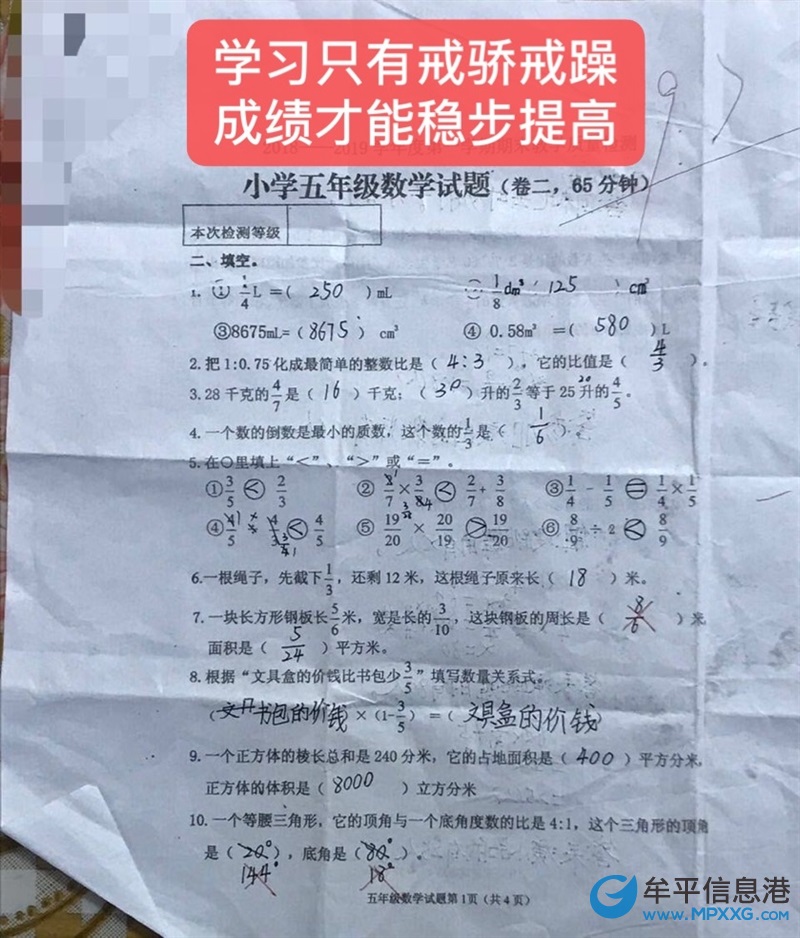 学习只有戒骄戒躁
成绩才能稳步提高
97
小学五年级数学试题（卷二，65分钟）
本次检测等级
二、填空。
1. ① 1/4 L =( 250 )mL ② 1/8 dm³( 125 ) cm³
③8675mL=( 8675 ) cm³ ④ 0.58m³ =( 580 )L
2. 把 1:0.75 化成最简单的整数比是（ 4:3 ），它的比值是（ 4/3 ）。
3. 28 千克的 4/7 是（ 16 ）千克；（ 30 ）升的 2/3 等于 25 升的 4/5。
4. 一个数的倒数是最小的质数，这个数的 1/3 是（ 1/6 ）。
5. 在○里填上“<”、“>”或“=”。
① 3/5 < 2/3 ② 8/7 × 3/8 < 2/7 + 3/8 ③ 1/4 - 1/5 = 1/4 × 1/5
④ 4/5 < 4/5 ⑤ 19/20 × 20/19 > 19/20 ⑥ 8/9 ÷ 2 < 8/9
6. 一根绳子，先截下 1/3，还剩 12 米，这根绳子原来长（ 18 ）米。
7. 一块长方形钢板长 5/6 米，宽是长的 3/10，这块钢板的周长是（ 8/6 ）米
面积是（ 5/24 ）平方米。
8. 根据“文具盒的价钱比书包少 3/5”填写数量关系式。
（书包的价钱 ×（1-3/5）=（ 文具盒的价钱）
9. 一个正方体的棱长总和是 240 分米，它的占地面积是（ 400 ）平方分米，
正方体的体积是（ 8000 ）立方分米
10. 一个等腰三角形，它的顶角与一个底角度数的比是 4:1，这个三角形的顶角
是（ 20° ），底角是（ 80° ）。
144° 18°
五年级数学试题第1页（共4页）
牟平信息港
www.MPXXG.com